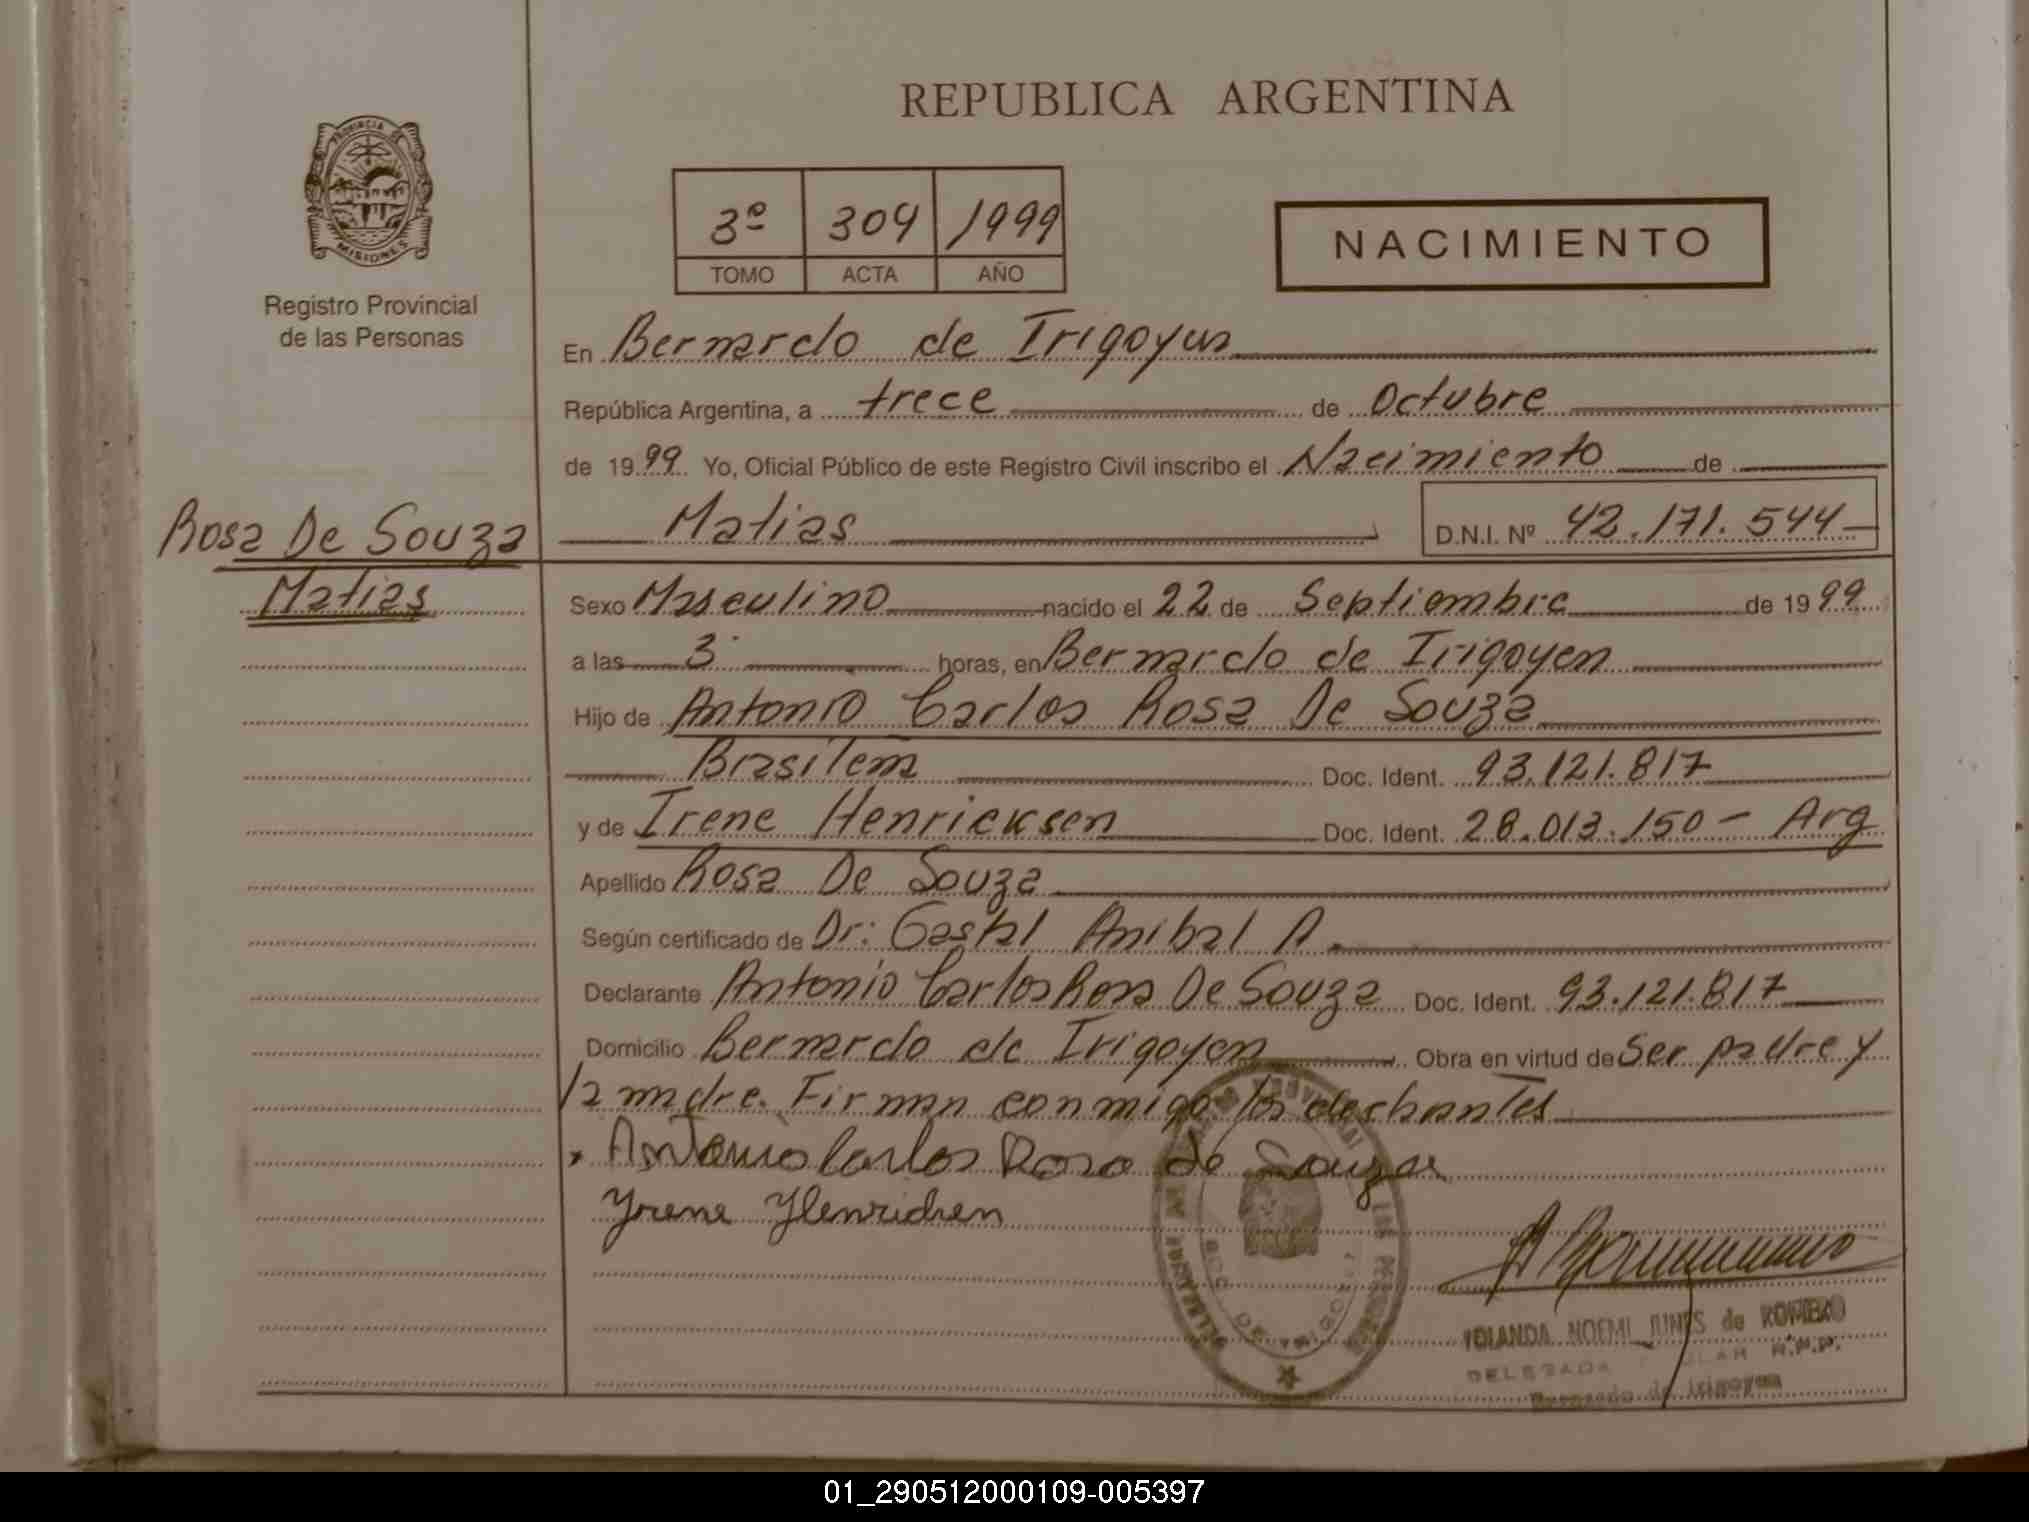 REPUBLICA ARGENTINA
PROVINCIA DE
MISIONES
Registro Provincial
de las Personas
3º 304 1999
TOMO ACTA AÑO
NACIMIENTO
En Bernardo de Irigoyen
República Argentina, a trece de Octubre
de 1999 Yo, Oficial Público de este Registro Civil inscribo el Nacimiento de
Rosa De Souza
Matias
Matias D.N.I. Nº 42.171.544
Sexo Masculino nacido el 22 de Septiembre de 1999
a las 3 horas, en Bernardo de Irigoyen
Hijo de Antonio Carlos Rosa De Souza
Brasileña Doc. Ident. 93.121.817
y de Irene Henricksen Doc. Ident. 28.013.150 - Arg
Apellido Rosa De Souza
Según certificado de Dr: Anibal A.
Declarante Antonio Carlos Rosa De Souza Doc. Ident. 93.121.817
Domicilio Bernardo de Irigoyen Obra en virtud de Ser padre y
la madre. Firman conmigo los
Antonio Carlos Rosa de Souza
Yrene
YOLANDA NOEMI JUNES de ROMERO
DELEGADA R.P.P.
Bernardo de Irigoyen
01_290512000109-005397